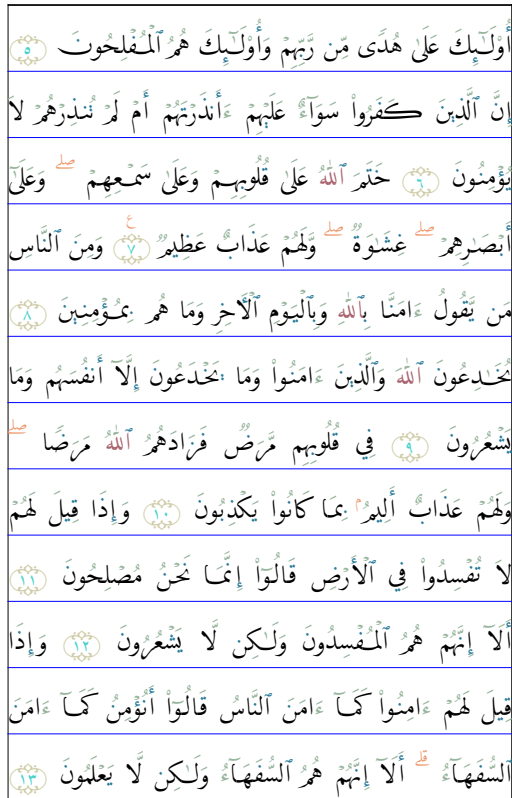 أُوْلَـٰٓئِكَ عَلَىٰ هُدًى مِّن رَّبِّهِمْ وَأُوْلَـٰٓئِكَ هُمُ ٱلْمُفْلِحُونَ ٥
إِنَّ ٱلَّذِينَ كَفَرُواْ سَوَآءٌ عَلَيْهِمْ ءَأَنذَرْتَهُمْ أَمْ لَمْ تُنذِرْهُمْ لَا
يُؤْمِنُونَ ٦ خَتَمَ ٱللَّهُ عَلَىٰ قُلُوبِهِمْ وَعَلَىٰ سَمْعِهِمْ ۖ وَعَلَىٰٓ
أَبْصَـٰرِهِمْ ۖ غِشَـٰوَةٌ ۖ وَلَهُمْ عَذَابٌ عَظِيمٌ ٧ ع وَمِنَ ٱلنَّاسِ
مَن يَقُولُ ءَامَنَّا بِٱللَّهِ وَبِٱلْيَوْمِ ٱلْـَٔاخِرِ وَمَا هُم بِمُؤْمِنِينَ ٨
يُخَـٰدِعُونَ ٱللَّهَ وَٱلَّذِينَ ءَامَنُواْ وَمَا يَخْدَعُونَ إِلَّآ أَنفُسَهُم وَمَا
يَشْعُرُونَ ٩ فِي قُلُوبِهِم مَّرَضٌ فَزَادَهُمُ ٱللَّهُ مَرَضًا ۖ
وَلَهُمْ عَذَابٌ أَلِيمٌۢ بِمَا كَانُواْ يَكْذِبُونَ ١٠ وَإِذَا قِيلَ لَهُمْ
لَا تُفْسِدُواْ فِي ٱلْأَرْضِ قَالُوٓاْ إِنَّمَا نَحْنُ مُصْلِحُونَ ١١
أَلَآ إِنَّهُمْ هُمُ ٱلْمُفْسِدُونَ وَلَـٰكِن لَّا يَشْعُرُونَ ١٢ وَإِذَا
قِيلَ لَهُمْ ءَامِنُواْ كَمَآ ءَامَنَ ٱلنَّاسُ قَالُوٓاْ أَنُؤْمِنُ كَمَآ ءَامَنَ
ٱلسُّفَهَآءُ ۗ أَلَآ إِنَّهُمْ هُمُ ٱلسُّفَهَآءُ وَلَـٰكِن لَّا يَعْلَمُونَ ١٣